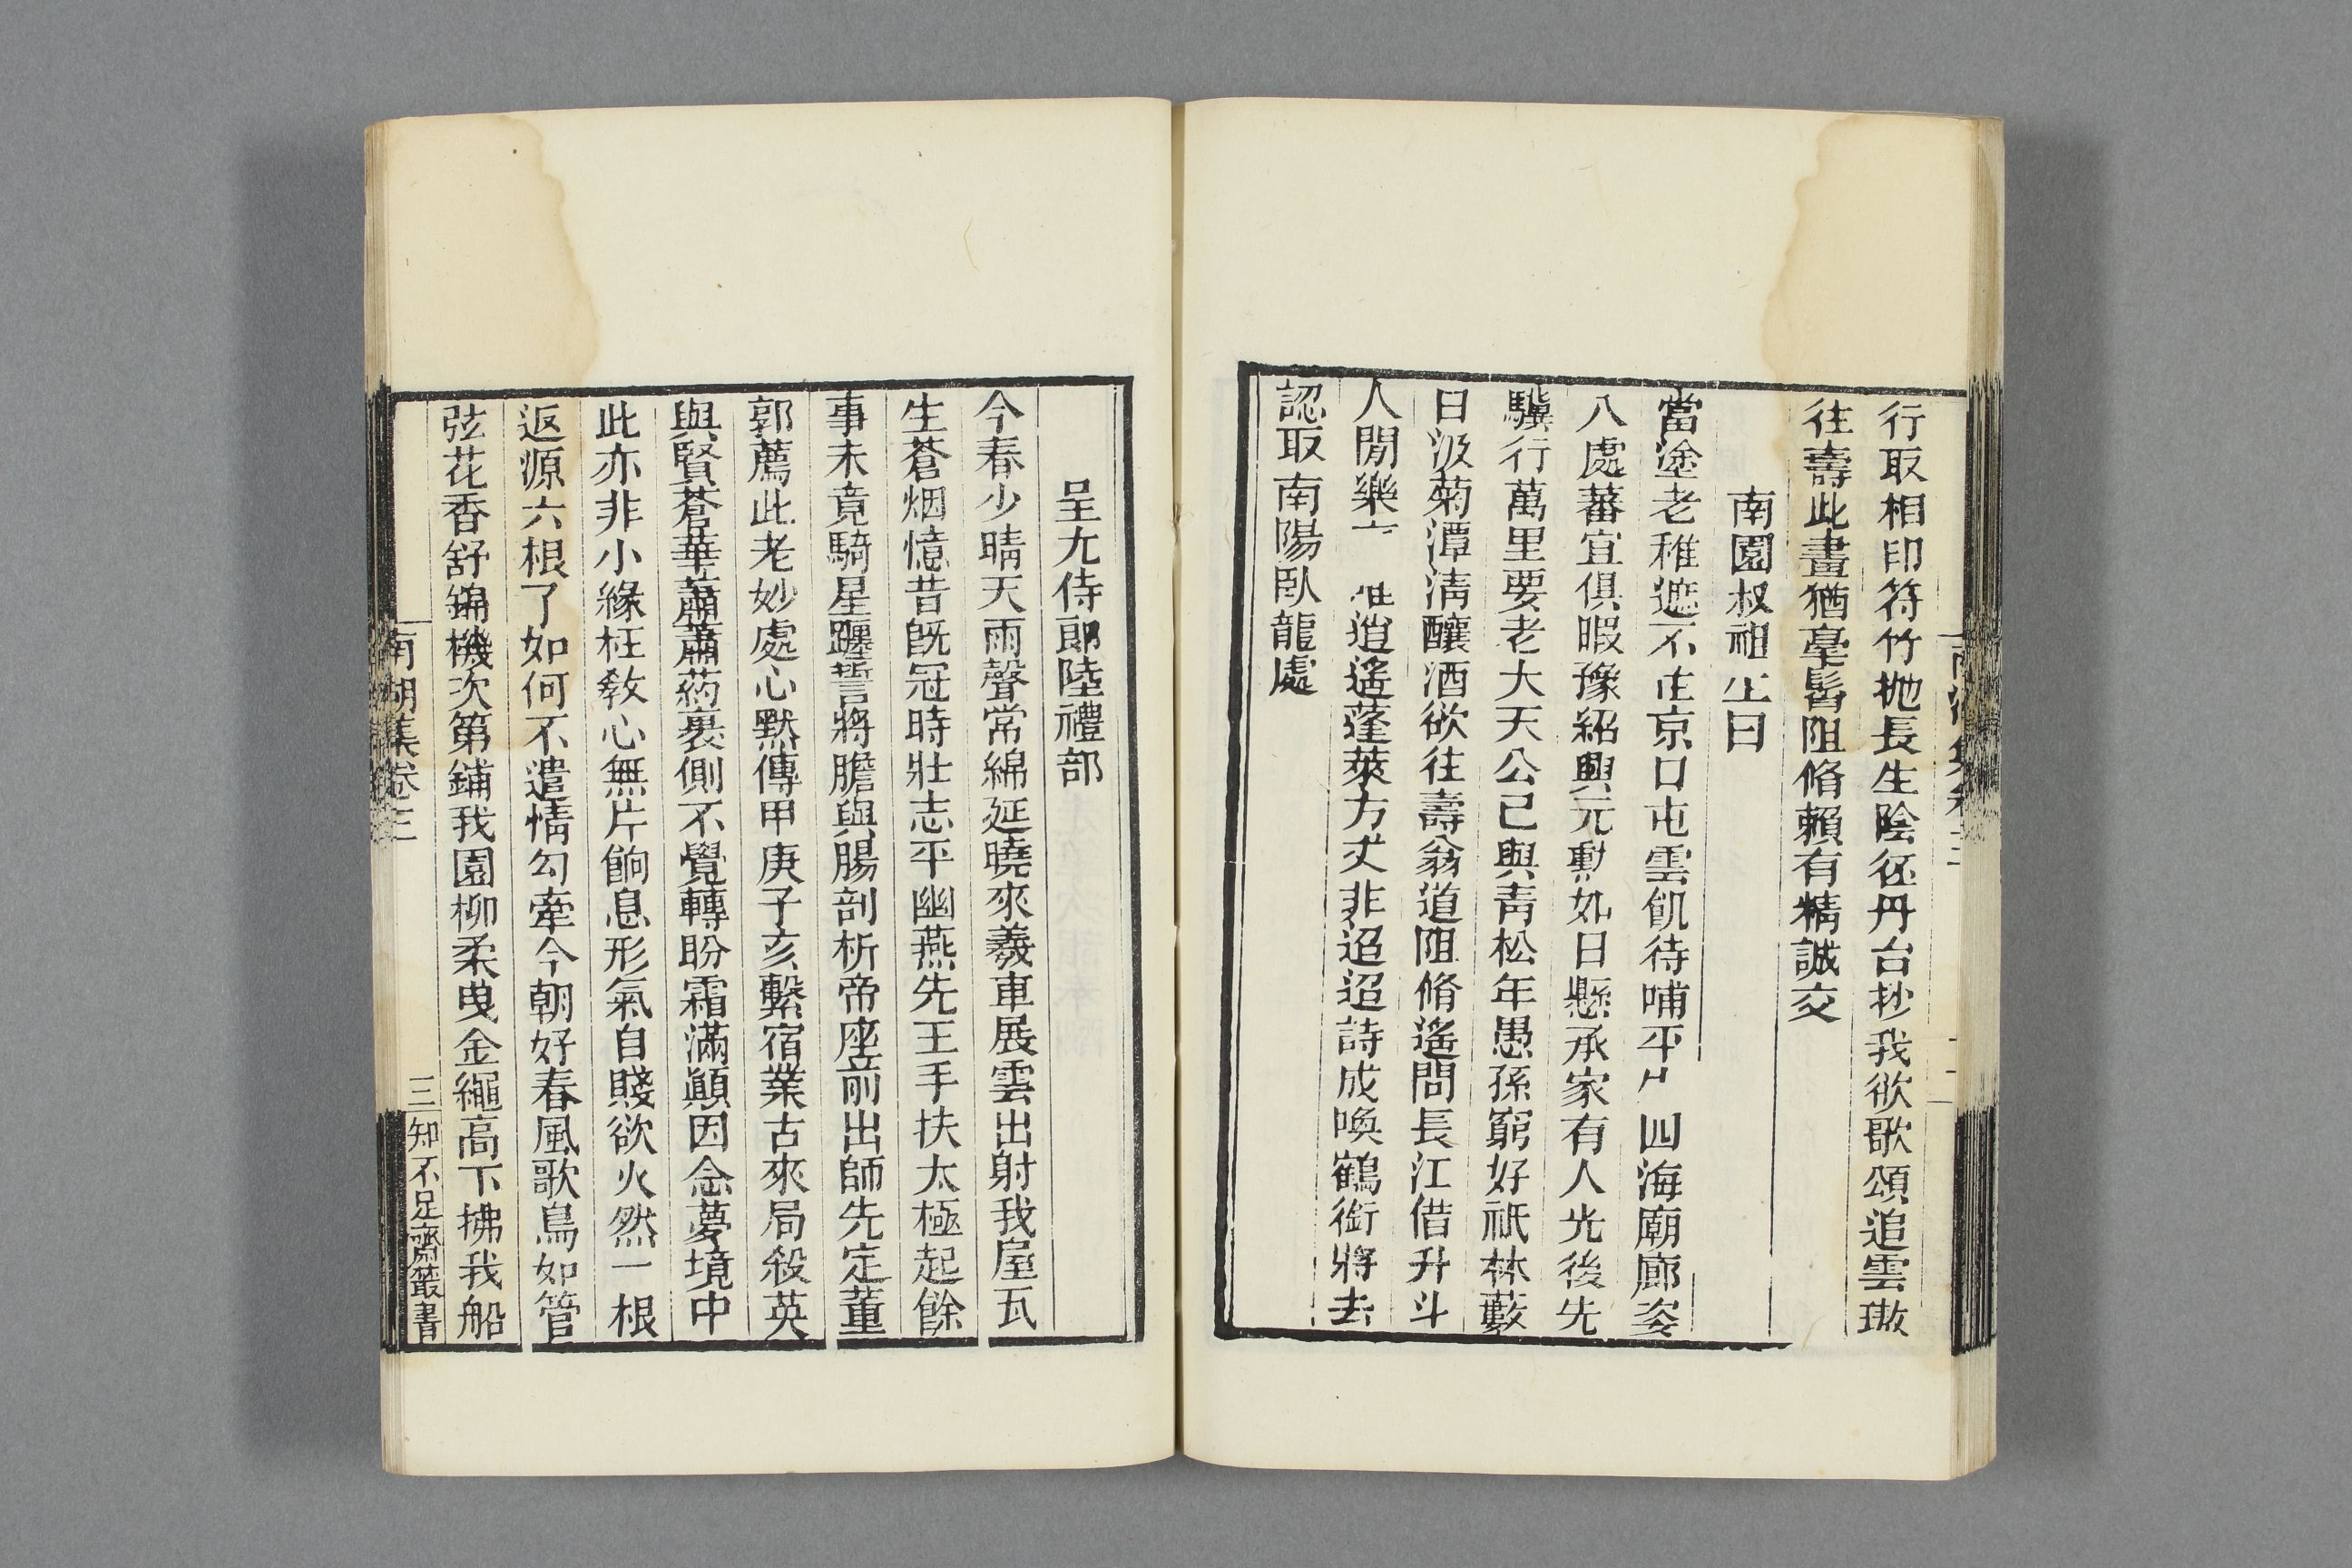 行取相印符竹抛長生陰徑丹台抄我欲歌頌追雲璈
往壽此畫猶毫髫阻脩賴有精誠交
南園叔祖生日
當塗老稚遮不住京口屯雲飢待哺平 四海廟廊姿
八處蕃宣俱暇豫紹興元勳如日懸承家有人光後先
驥行萬里要老大天公已與青松年愚孫窮好祇林藪
日汲菊潭清釀酒欲往壽翁道阻脩遙問長江借升斗
人閒樂 逍遙蓬萊方丈非迢迢詩成喚鶴銜將去
認取南陽臥龍處
呈尤侍郎陸禮部
今春少晴天雨聲常綿延曉來羲車展雲出射我屋瓦
生蒼烟憶昔旣冠時壯志平幽燕先王手扶太極起餘
事未竟騎星躔誓將膽與腸剖析帝座前出師先定董
郭薦此老妙處心默傳甲庚子亥繫宿業古來局殺英
與賢蒼華蕭蕭葯裹側不覺轉盼霜滿顚因念夢境中
此亦非小緣枉敎心無片餉息形氣自賤欲火然一根
返源六根了如何不遣情勾牽今朝好春風歌鳥如管
弦花香舒錦機次第鋪我園柳柔曳金繩高下拂我船
南湖集卷三
三
知不足齋叢書